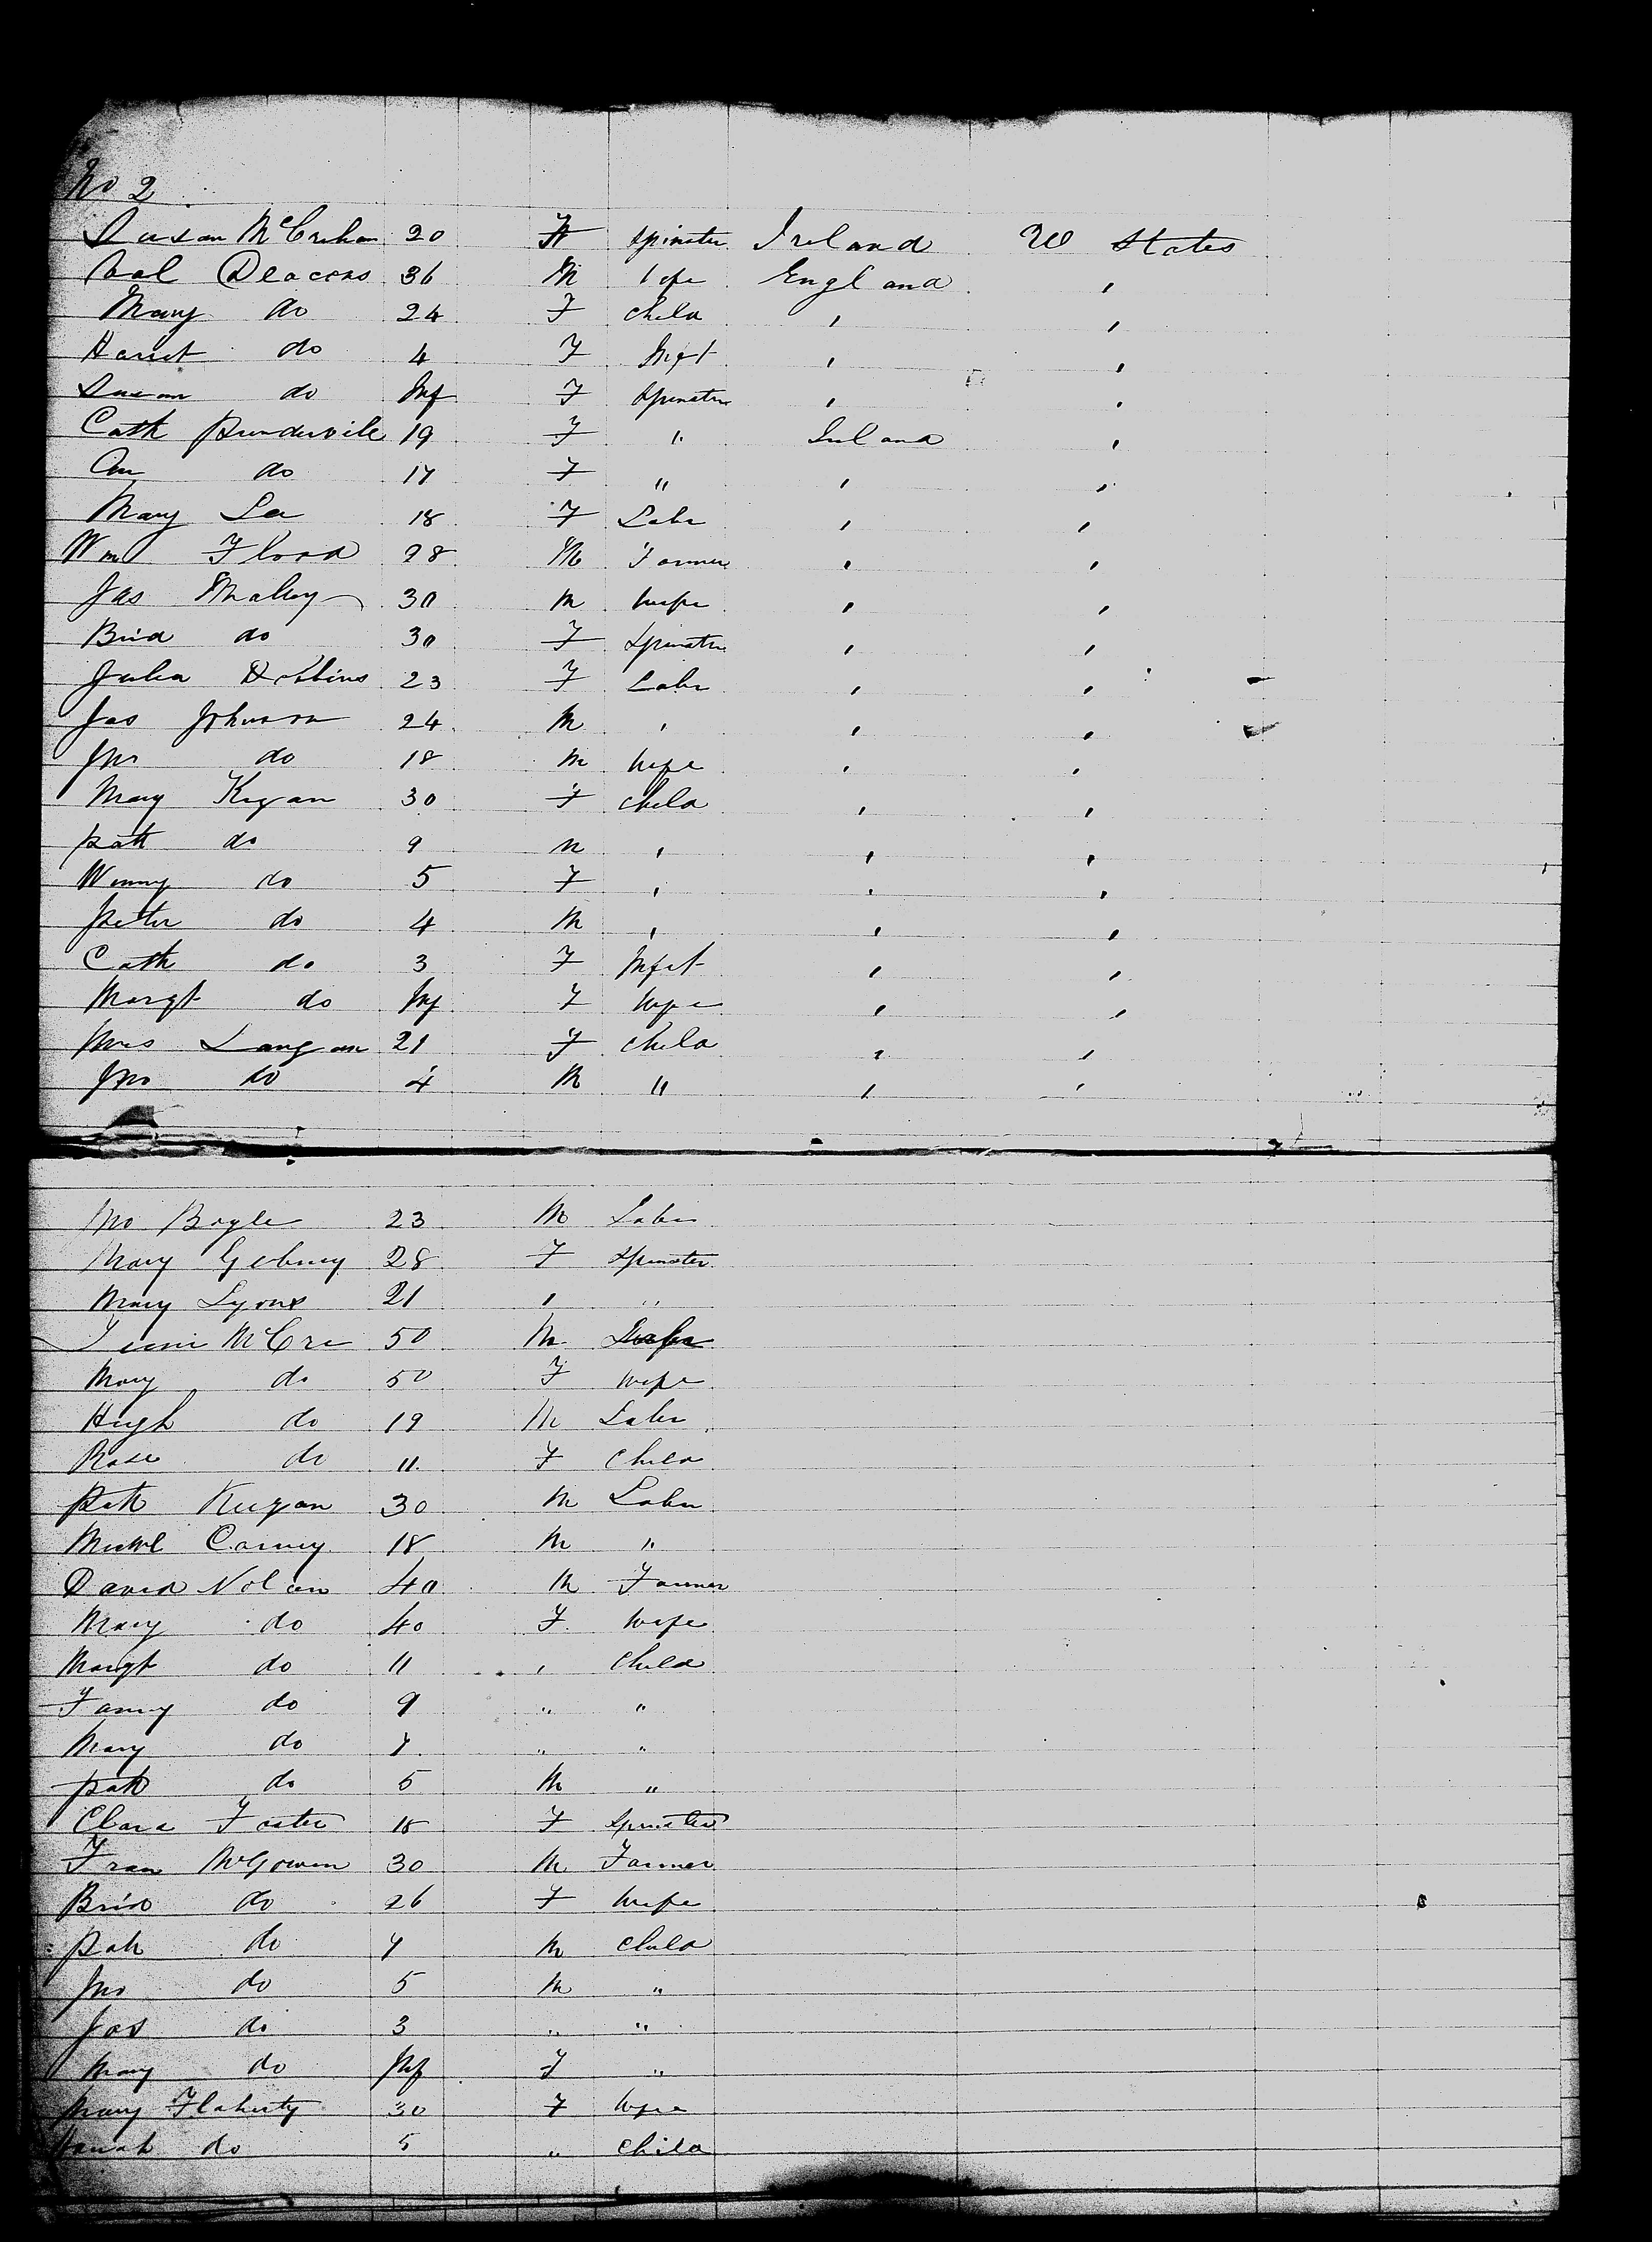 No 2
Susan McCrehan 20 F Spinster Ireland U States
Val Deacons 36 M Wife England "
Mary do 24 F Child " "
Harriet do 4 F Inft " "
Susan do Inf F Spinster " "
Cath 19 F " Ireland "
Ann do 17 F " " "
Mary Lee 18 F Labr " "
Wm Flood 28 M Farmer " "
Jas Malley 30 M Wife " "
Brid do 30 F Spinster " "
Julia Dobbins 23 F Labr " "
Jas Johnson 24 M " " "
Jno do 18 M Wife " "
Mary Kegan 30 F Child " "
Patk do 9 M " " "
Winny do 5 F " " "
Peter do 4 M " " "
Cath do 3 F Infnt " "
Margt do Inf F Wife " "
Mrs Langan 21 F Child " "
Jno do 4 M " " "
Jno Boyle 23 M Labr
Mary 28 F Spinster
Mary Lyons 21 " "
McCre 50 M Labr
Mary do 50 F Wife
Hugh do 19 M Labr
Rose do 11 F Child
Patk Keegan 30 M Labr
Michl Carney 18 M "
David Nolan 40 M Farmer
Mary do 40 F Wife
Margt do 11 " Child
Fanny do 9 " "
Mary do 7 " "
Patk do 5 M "
Clara Foster 18 F Spinster
Fran McGowen 30 M Farmer
Brid do 26 F Wife
Patk do 7 M Child
Jno do 5 M "
Jas do 3 " "
Mary do Inf F "
Mary Flaherty 30 F Wife
Hanah do 5 " Child